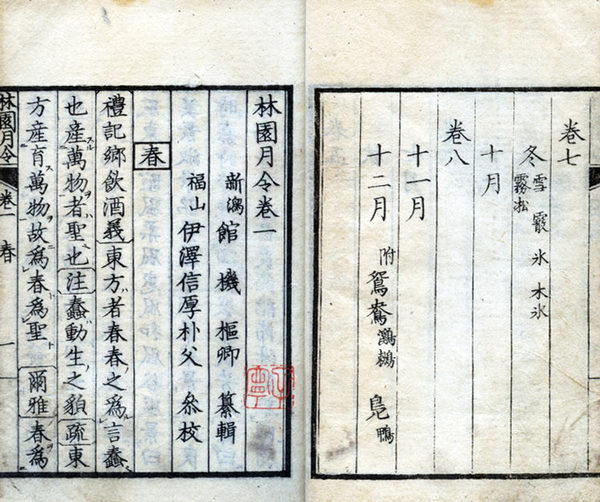 卷七
冬 雪 霰 氷 木氷
霧凇
十月
卷八
十一月
十二月 附 鴛鴦 鸂鶒 鳧 鴨
林園月令卷一
新潟 館 機 樞卿 纂輯
福山 伊澤信厚朴父 叅校
春
禮記鄉飲酒義東方者春春之爲言蠢
也產萬物者聖也注蠢動生之貌疏東
方產育萬物故爲春爲聖 爾雅春爲
林園月令 卷一 春 一